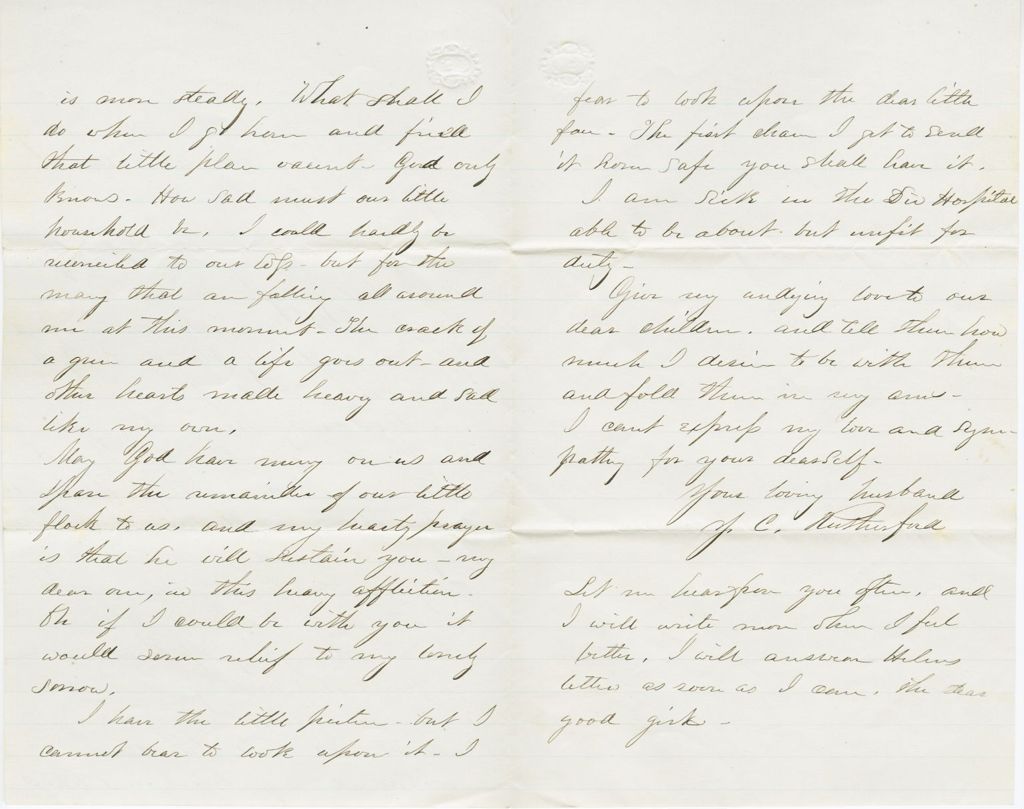 is more steady. What shall I
do when I go home and find
that little place vacant - God only
knows. How sad must our little
household be. I could hardly be
reconciled to our loss - but for the
many that are falling all around
me at this moment - The crack of
a gun and a life goes out - and
other hearts made heavy and sad
like my own.
May God have mercy on us and
spare the remainder of our little
flock to us. and my hearty prayer
is that he will sustain you - my
dear one, in this heavy affliction.
Oh if I could be with you it
would seem relief to my lonely
sorrow.
I have the little picture - but I
cannot bear to look upon it - I
fear to look upon the dear little
face - The first chance I get to send
it home safe you shall have it.
I am sick in the Div Hospital
able to be about but unfit for
duty -
Give my undying love to our
dear children. and tell them how
much I desire to be with them
and fold them in my arms -
I cant express my love and sym-
pathy for your dear self -
Your loving husband
J. C. Rutherford
Let me hear from you often, and
I will write more when I feel
better. I will answer Helens
letter as soon as I can. the dear
good girl -